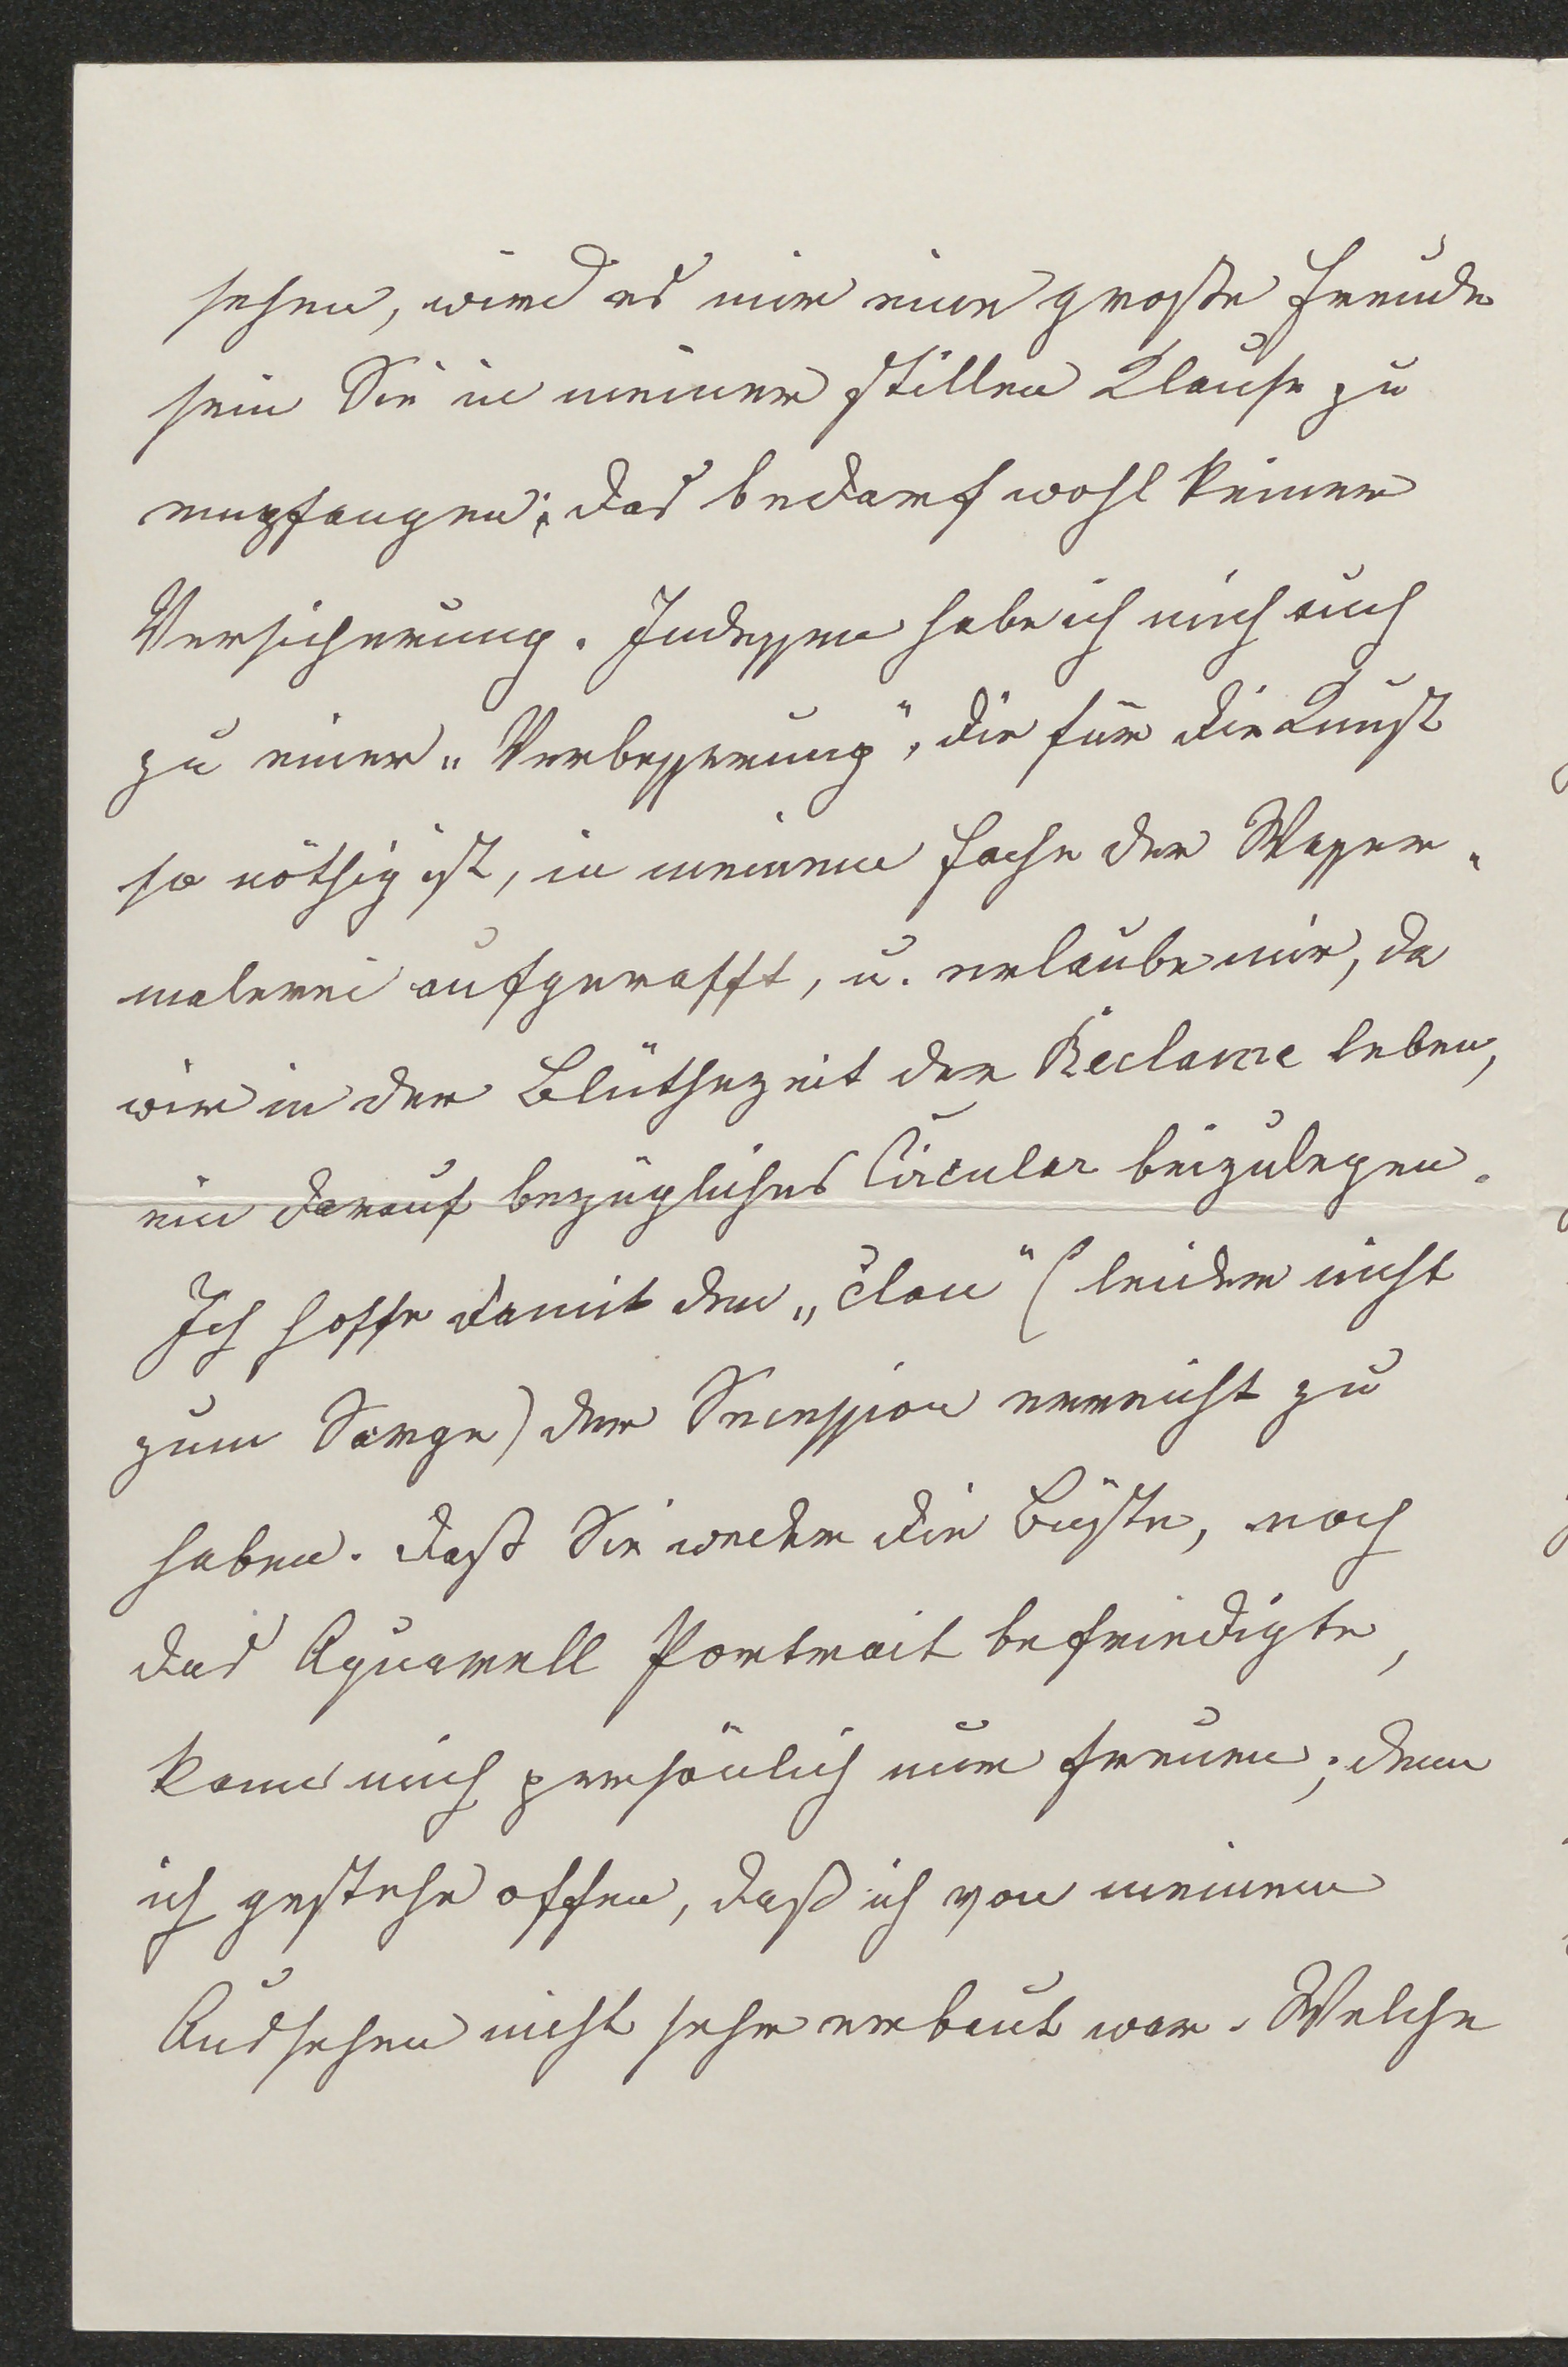 sehen, wird es mir eine große Freude
sein Sie in meiner stillen Klause zu
empfangen; das bedarf wohl keiner
Versicherung. Indessen habe ich mich auch
zu einer „Verbesserung", die für die Kunst
so nöthig ist, in meinem Fache der Wasser-
malerei aufgerafft, u. erlaube mir, da
wir in der Blüthezeit der Reclame leben,
ein darauf bezügliches Circular beizulegen.
Ich hoffe damit den „clou" (leider nicht
zum Sarge) der Secession erreicht zu
haben. Daß Sie weder die Büste, noch
das Aquarell Portrait befriedigte,
kann mich persönlich nur freuen; denn
ich gestehe offen, daß ich von meinem
Aussehen nicht sehr erbaut war. Welche